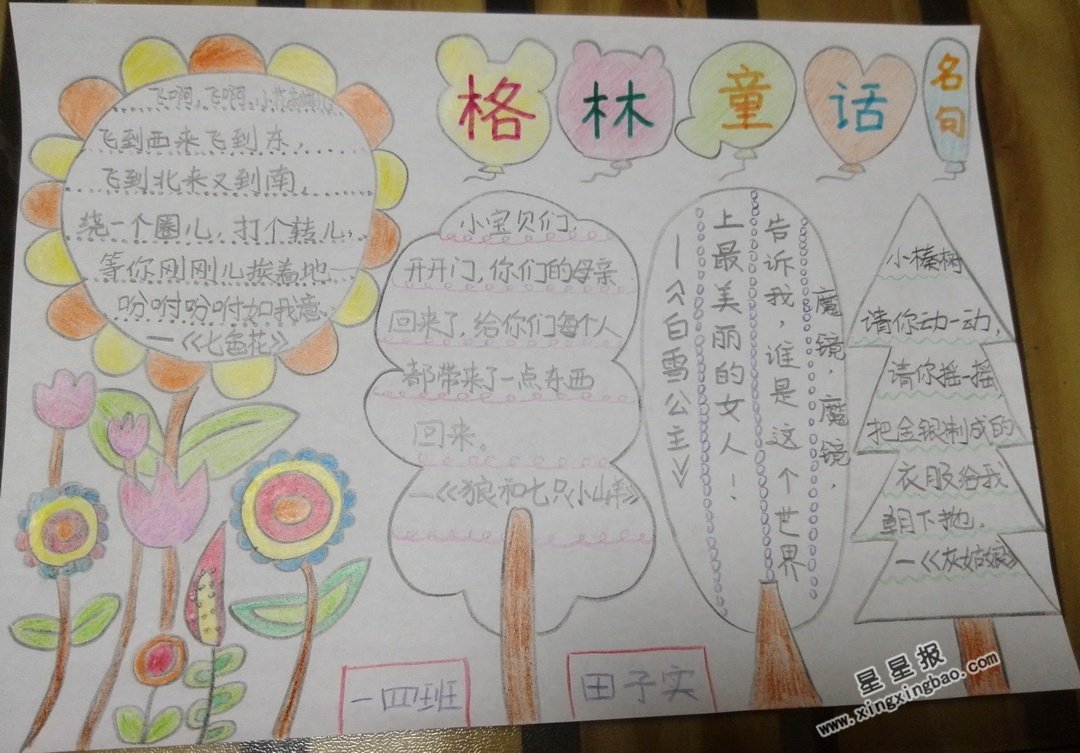 格林童话名句
飞啊,飞啊,小花瓣
飞到西来飞到东,
飞到北来又到南,
绕一个圈儿,打个转儿,
等你刚刚儿挨着地—
吩咐吩咐如我意,
—《七色花》
小宝贝们,
开开门,你们的母亲
回来了,给你们每个人
都带来了一点东西
回来。
—《狼和七只小山羊》
魔镜,魔镜,
告诉我,谁是这个世界
上最美丽的女人!
—《白雪公主》
小榛树
请你动一动,
请你摇一摇,
把金银制成的
衣服给我
朝下抛.
—《灰姑娘》
一四班
田子实
星星报
www.xingxingbao.com